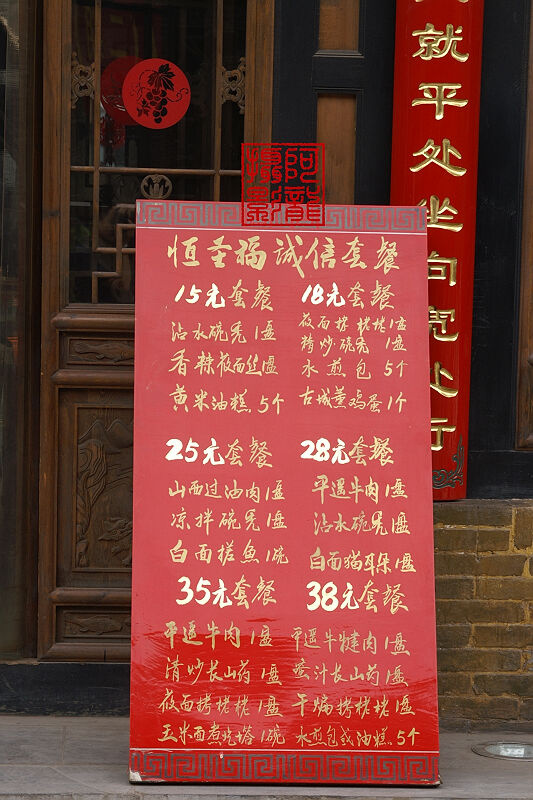 就平处坐向
恒圣福诚信套餐
15元套餐
沾水碗秃1盘
香辣莜面丝1盘
黄米油糕5个
18元套餐
莜面搓栳栳1盘
精炒碗秃1盘
水煎包5个
古城薰鸡蛋1个
25元套餐
山西过油肉1盘
凉拌碗秃1盘
白面搓鱼1碗
28元套餐
平遥牛肉1盘
沾水碗秃1盘
白面猫耳朵1盘
35元套餐
平遥牛肉1盘
清炒长山药1盘
莜面栲栳栳1盘
玉米面煮圪塔1碗
38元套餐
平遥牛腱肉1盘
蜜汁长山药1盘
干煸栲栳栳1盘
水煎包或油糕5个